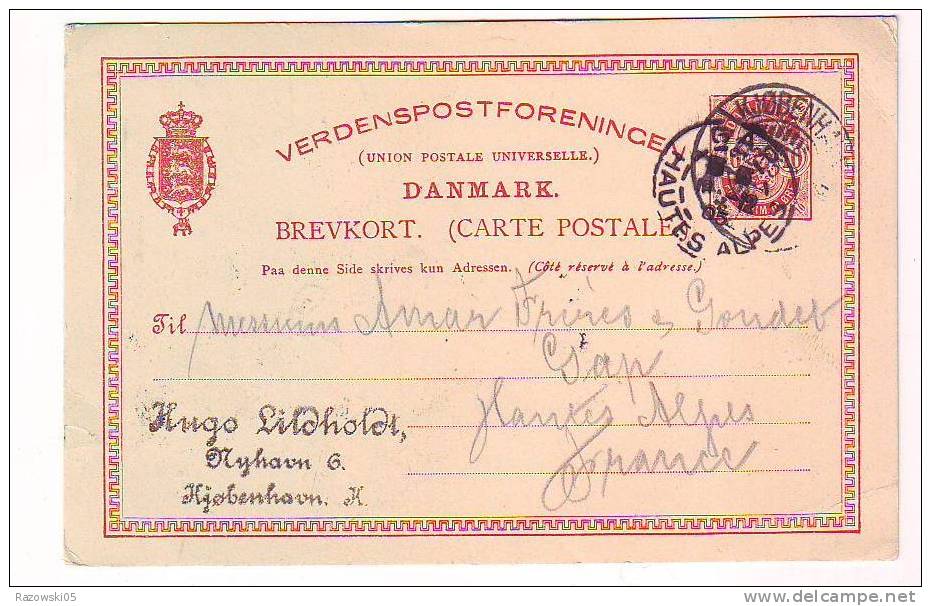 VERDENSPOSTFORENINGEN
(UNION POSTALE UNIVERSELLE.)
DANMARK.
BREVKORT. (CARTE POSTALE
Paa denne Side skrives kun Adressen. (Côté réservé à l'adresse.)
KJØBENHA
HAUTES ALPES
05
Til Messieurs Amar Frères & Gondet
Gap
Hautes Alpes
France
Hugo Lildholdt,
Nyhavn 6.
Kjøbenhavn. K.
Razowski05
www.delcampe.net